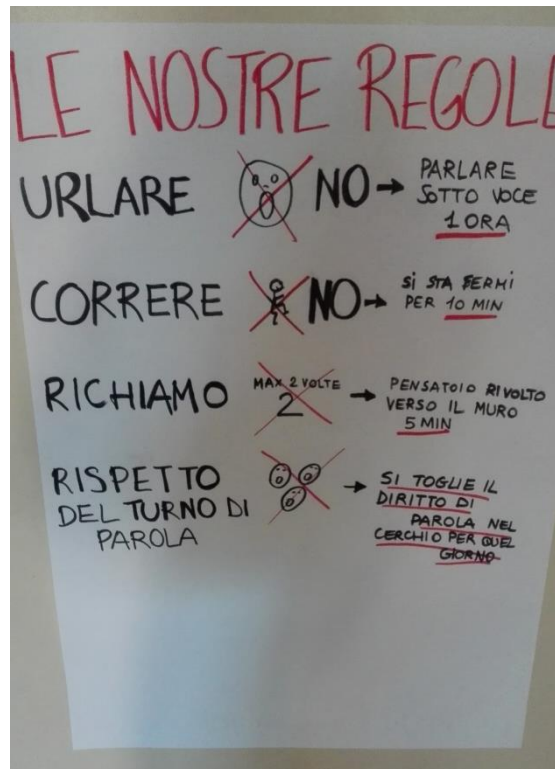 LE NOSTRE REGOLE
URLARE NO → PARLARE
SOTTO VOCE
1 ORA
CORRERE NO → SI STA FERMI
PER 10 MIN
RICHIAMO MAX 2 VOLTE
2 → PENSATOIO RIVOLTO
VERSO IL MURO
5 MIN
RISPETTO
DEL TURNO DI
PAROLA → SI TOGLIE IL
DIRITTO DI
PAROLA NEL
CERCHIO PER QUEL
GIORNO